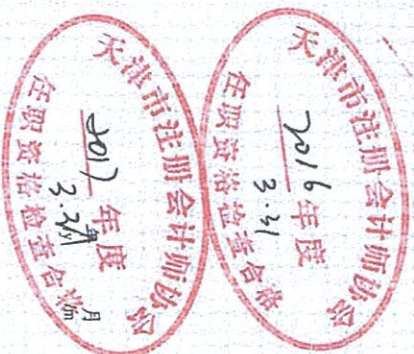 天津市注册会计师协会
2016年度
3.31
任职资格检查合格
天津市注册会计师协会
2017年度
任职资格检查合格